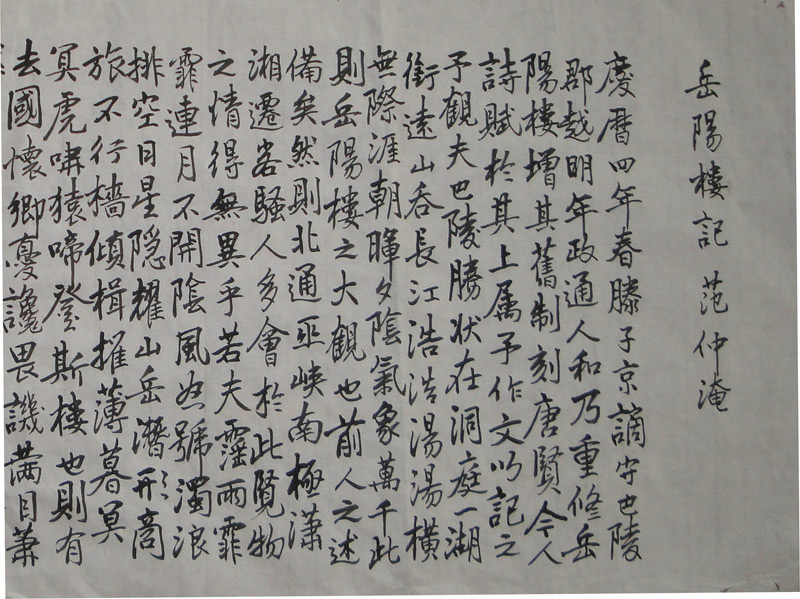 岳陽樓記 范仲淹
慶曆四年春滕子京謫守巴陵
郡越明年政通人和乃重修岳
陽樓增其舊制刻唐賢今人
詩賦於其上属予作文以記之
予觀夫巴陵勝狀在洞庭一湖
銜遠山吞長江浩浩湯湯橫
無際涯朝暉夕陰氣象萬千此
則岳陽樓之大觀也前人之述
備矣然則北通巫峽南極瀟
湘遷客騷人多會於此覽物
之情得無異乎若夫霪雨霏
霏連月不開陰風怒號濁浪
排空日星隐耀山岳潛形商
旅不行檣傾楫摧薄暮冥
冥虎嘯猿啼登斯樓也則有
去國懷鄉憂讒畏譏满目蕭